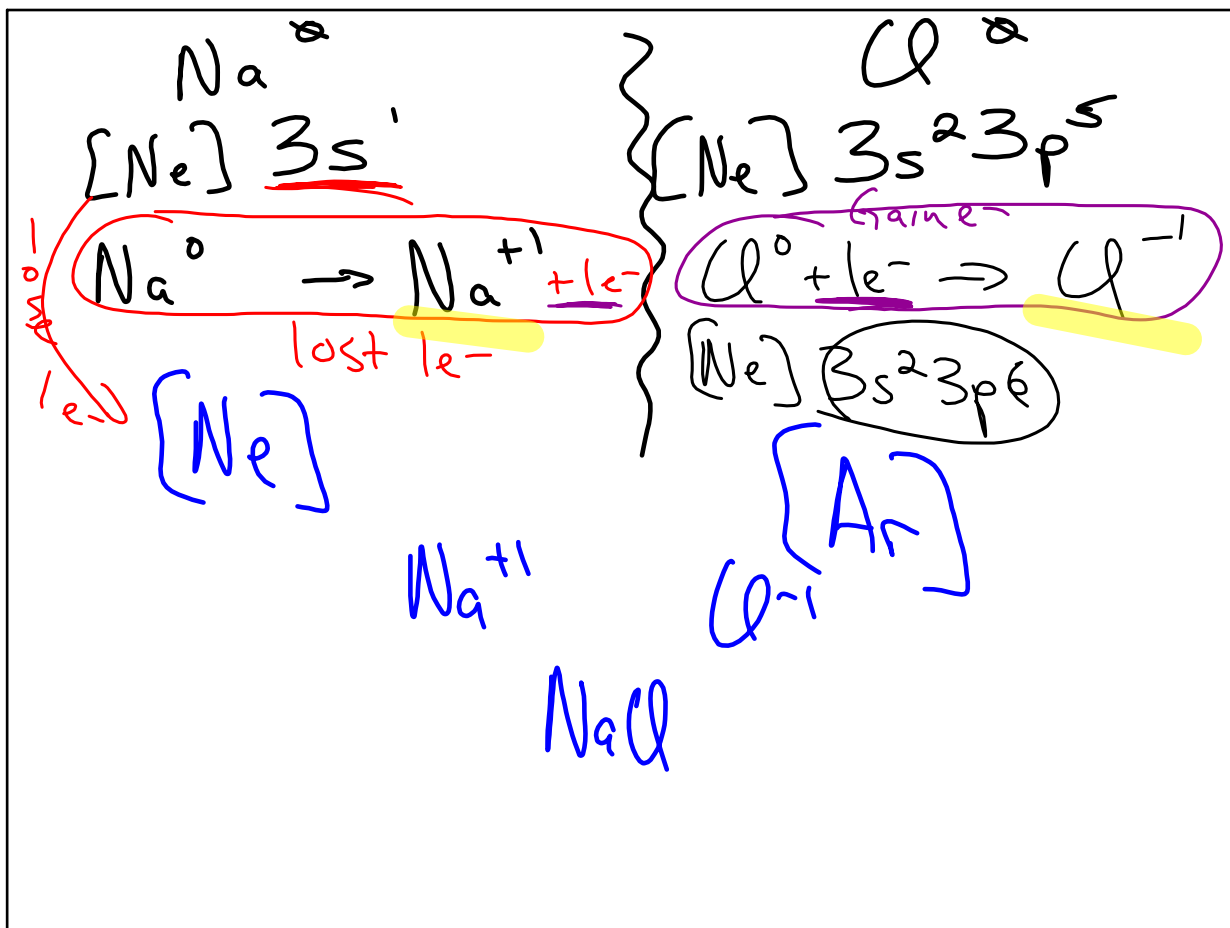 Na⁰
[Ne] 3s¹
Na⁰ → Na⁺¹ + 1e⁻
lost 1e⁻
lose 1e⁻
[Ne]
Cl⁰
[Ne] 3s² 3p⁵
Gain e⁻
Cl⁰ + 1e⁻ → Cl⁻¹
[Ne] 3s² 3p6
[Ar]
Na⁺¹ Cl⁻¹
NaCl